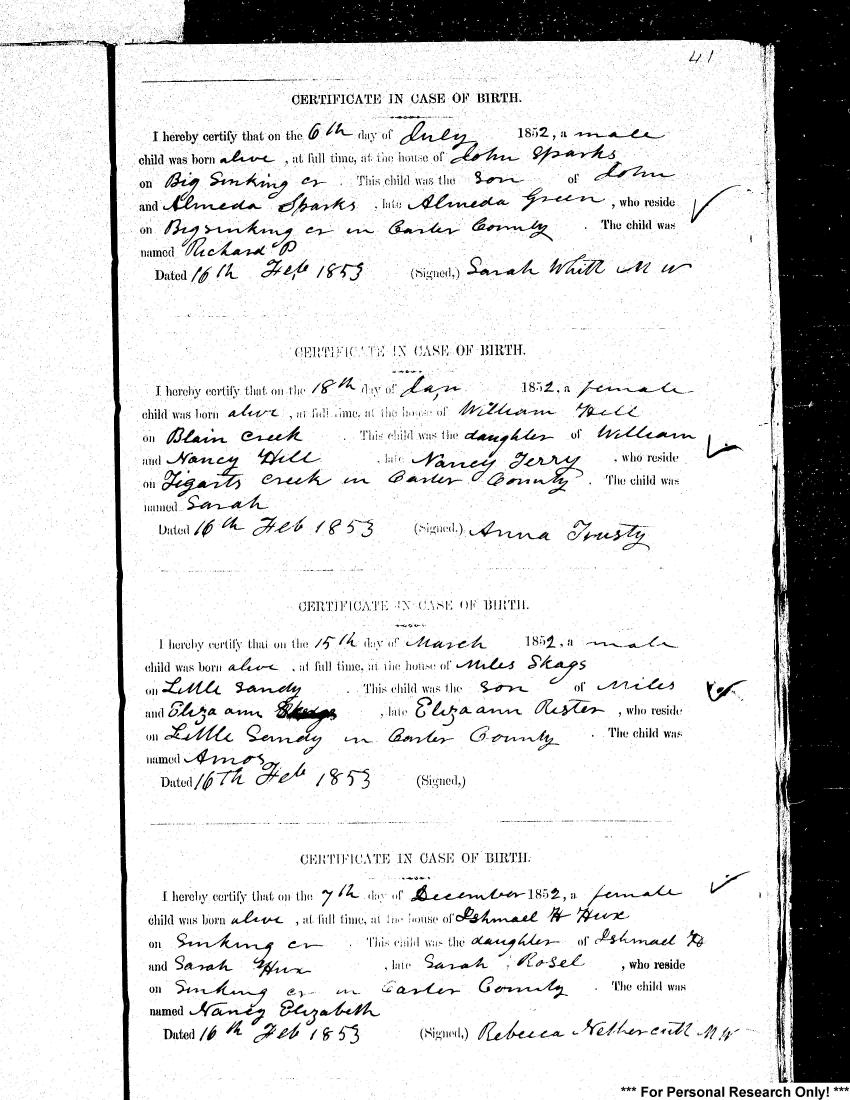 41
CERTIFICATE IN CASE OF BIRTH.
I hereby certify that on the 6th day of July 1852, a male
child was born alive, at full time, at the house of John Sparks
on Big Sinking cr. This child was the son of John
and Almeda Sparks, late Almeda Green, who reside
on Big sinking cr in Carter County. The child was
named Richard P
Dated 16th Feb 1853 (Signed,) Sarah Whitt M W
CERTIFICATE IN CASE OF BIRTH.
I hereby certify that on the 18th day of Jan 1852, a female
child was born alive, at full time, at the house of William Hill
on Blain Creek. This child was the daughter of William
and Nancy Hill, late Nancy Terry, who reside
on Tigarts Creek in Carter County. The child was
named Sarah
Dated 16th Feb 1853 (Signed,) Anna Trusty
CERTIFICATE IN CASE OF BIRTH.
I hereby certify that on the 15th day of March 1852, a male
child was born alive, at full time, at the house of Miles Skags
on Little Sandy. This child was the son of Miles
and Eliza ann, late Elizaann Rister, who reside
on Little Sandy in Carter County. The child was
named Amos
Dated 16th Feb 1853 (Signed,)
CERTIFICATE IN CASE OF BIRTH.
I hereby certify that on the 7th day of December 1852, a female
child was born alive, at full time, at the house of Ishmael H Hux
on Sinking cr. This child was the daughter of Ishmael H
and Sarah Hux, late Sarah Rosel, who reside
on Sinking cr in Carter County. The child was
named Nancy Elizabeth
Dated 16th Feb 1853 (Signed,) Rebecca Nethercutt M W
*** For Personal Research Only! ***